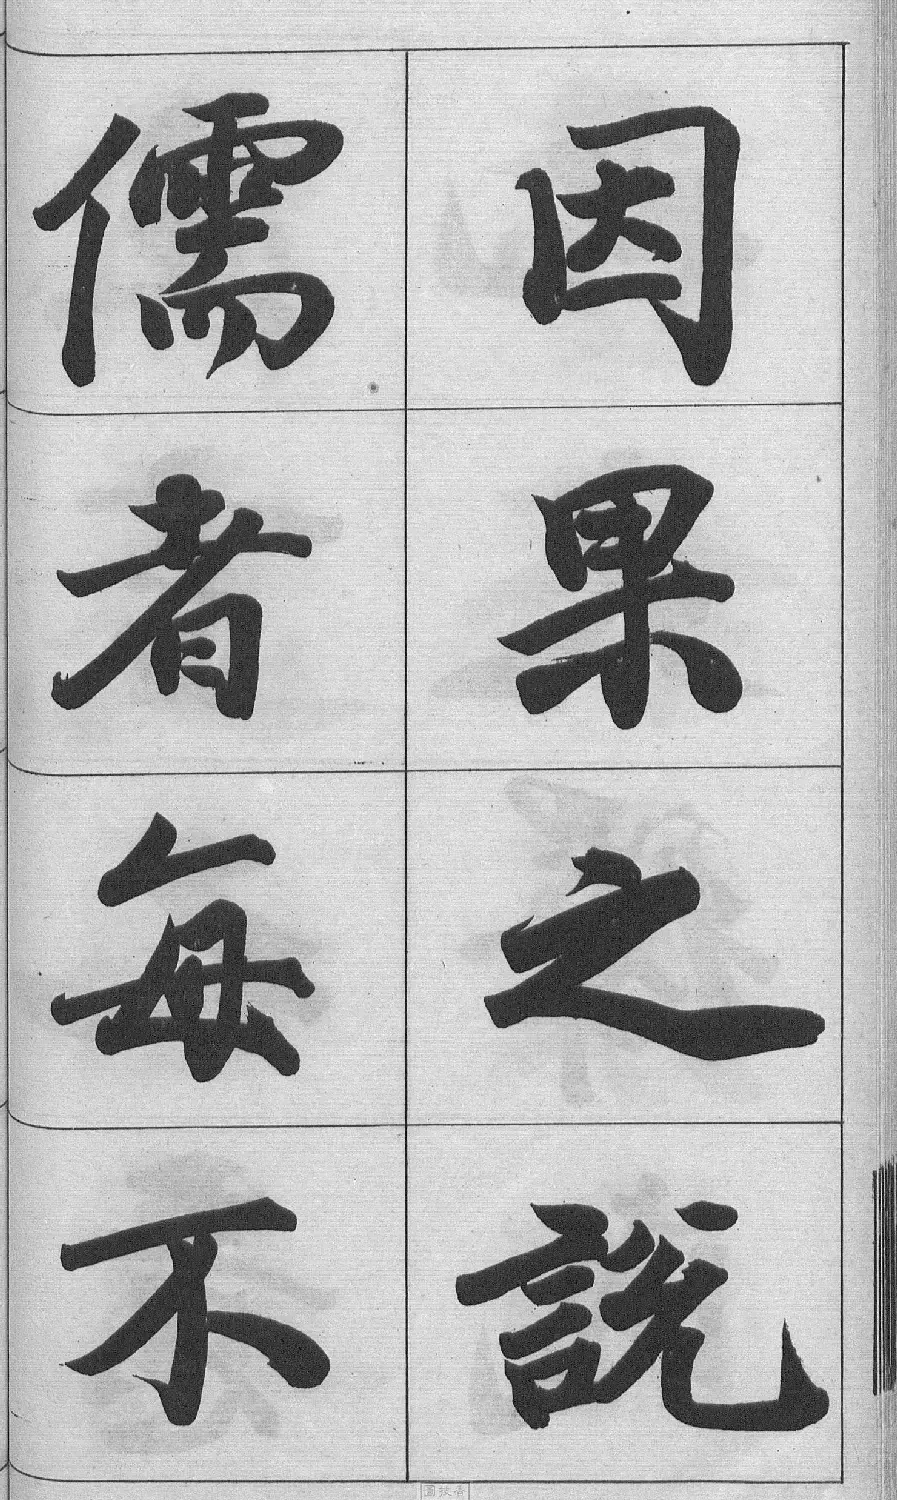 因果之說
儒者每不